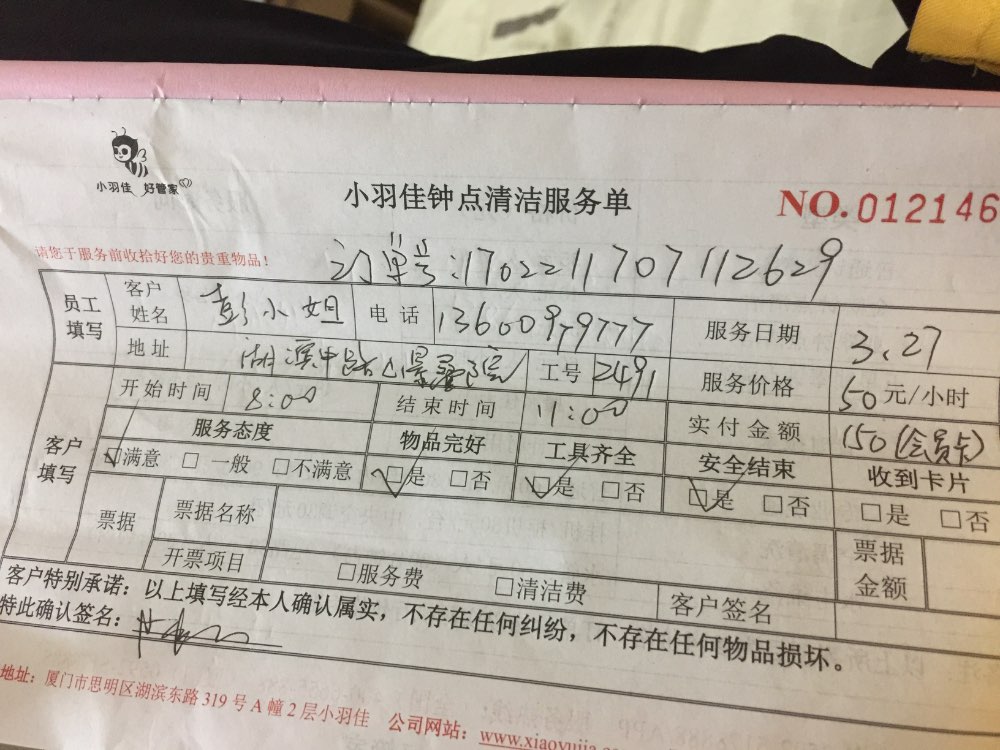 小羽佳 好管家
小羽佳钟点清洁服务单
NO.012146
请您于服务前收拾好您的贵重物品！
订单号:1702211707112629
员工填写 客户姓名 彭小姐 电话 13600979777 服务日期 3.27
地址 湖滨中路 工号 2491 服务价格 50元/小时
客户填写 开始时间 8:00 结束时间 11:00 实付金额 150(会员卡)
服务态度 物品完好 工具齐全 安全结束 收到卡片
☑满意 □一般 □不满意 ☑是 □否 ☑是 □否 ☑是 □否 □是 □否
票据 票据名称 票据金额
开票项目 □服务费 □清洁费 客户签名
客户特别承诺：以上填写经本人确认属实，不存在任何纠纷，不存在任何物品损坏。
特此确认签名：
地址：厦门市思明区湖滨东路319号A幢2层小羽佳 公司网站：www.xiaoyujia.com